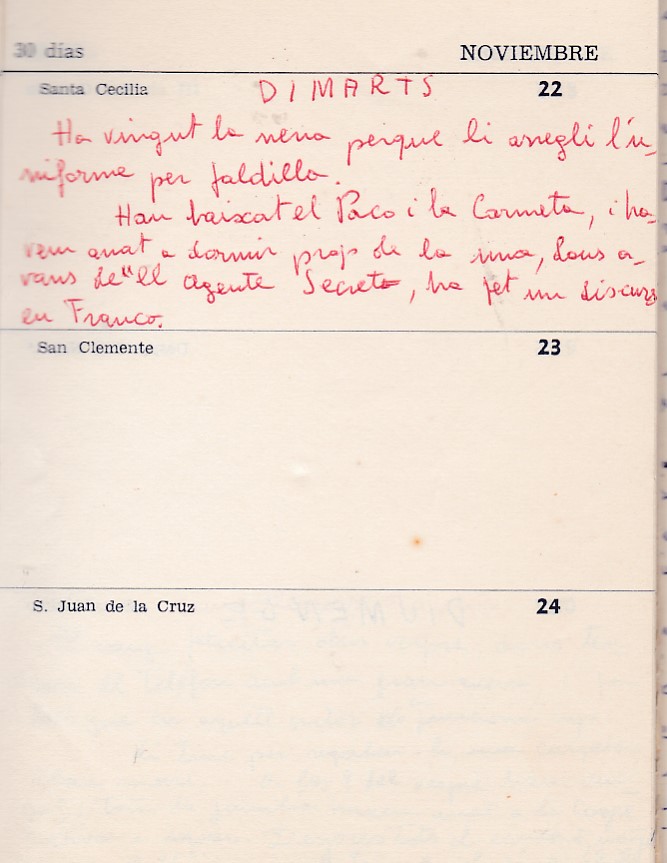 30 días NOVIEMBRE
Santa Cecilia DIMARTS 22
Ha vingut la nena perque li arregli l'u-
niforme per faldilla.
Han baixat el Paco i la Carmeta, i ha-
vem anat a dormir prop de la una, dous a-
vans de "El Agente Secreto, ha fet un discurs
en Franco.
San Clemente 23
S. Juan de la Cruz 24